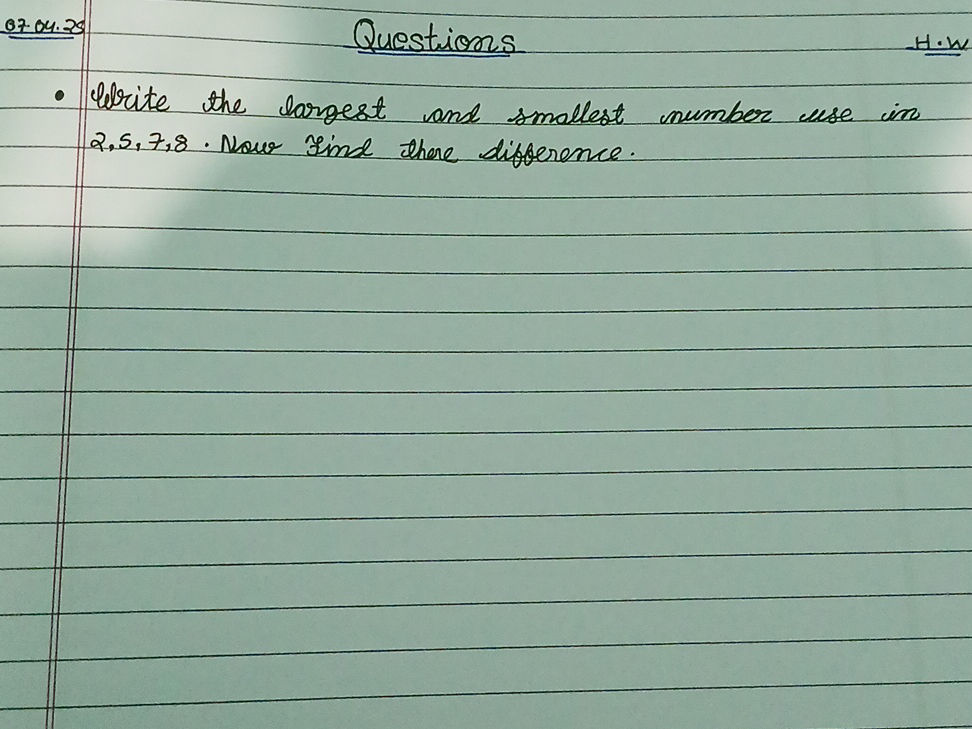 07.04.25
Questions
H.W
• Write the largest and smallest number use in
2,5,7,8. Now Find there difference.